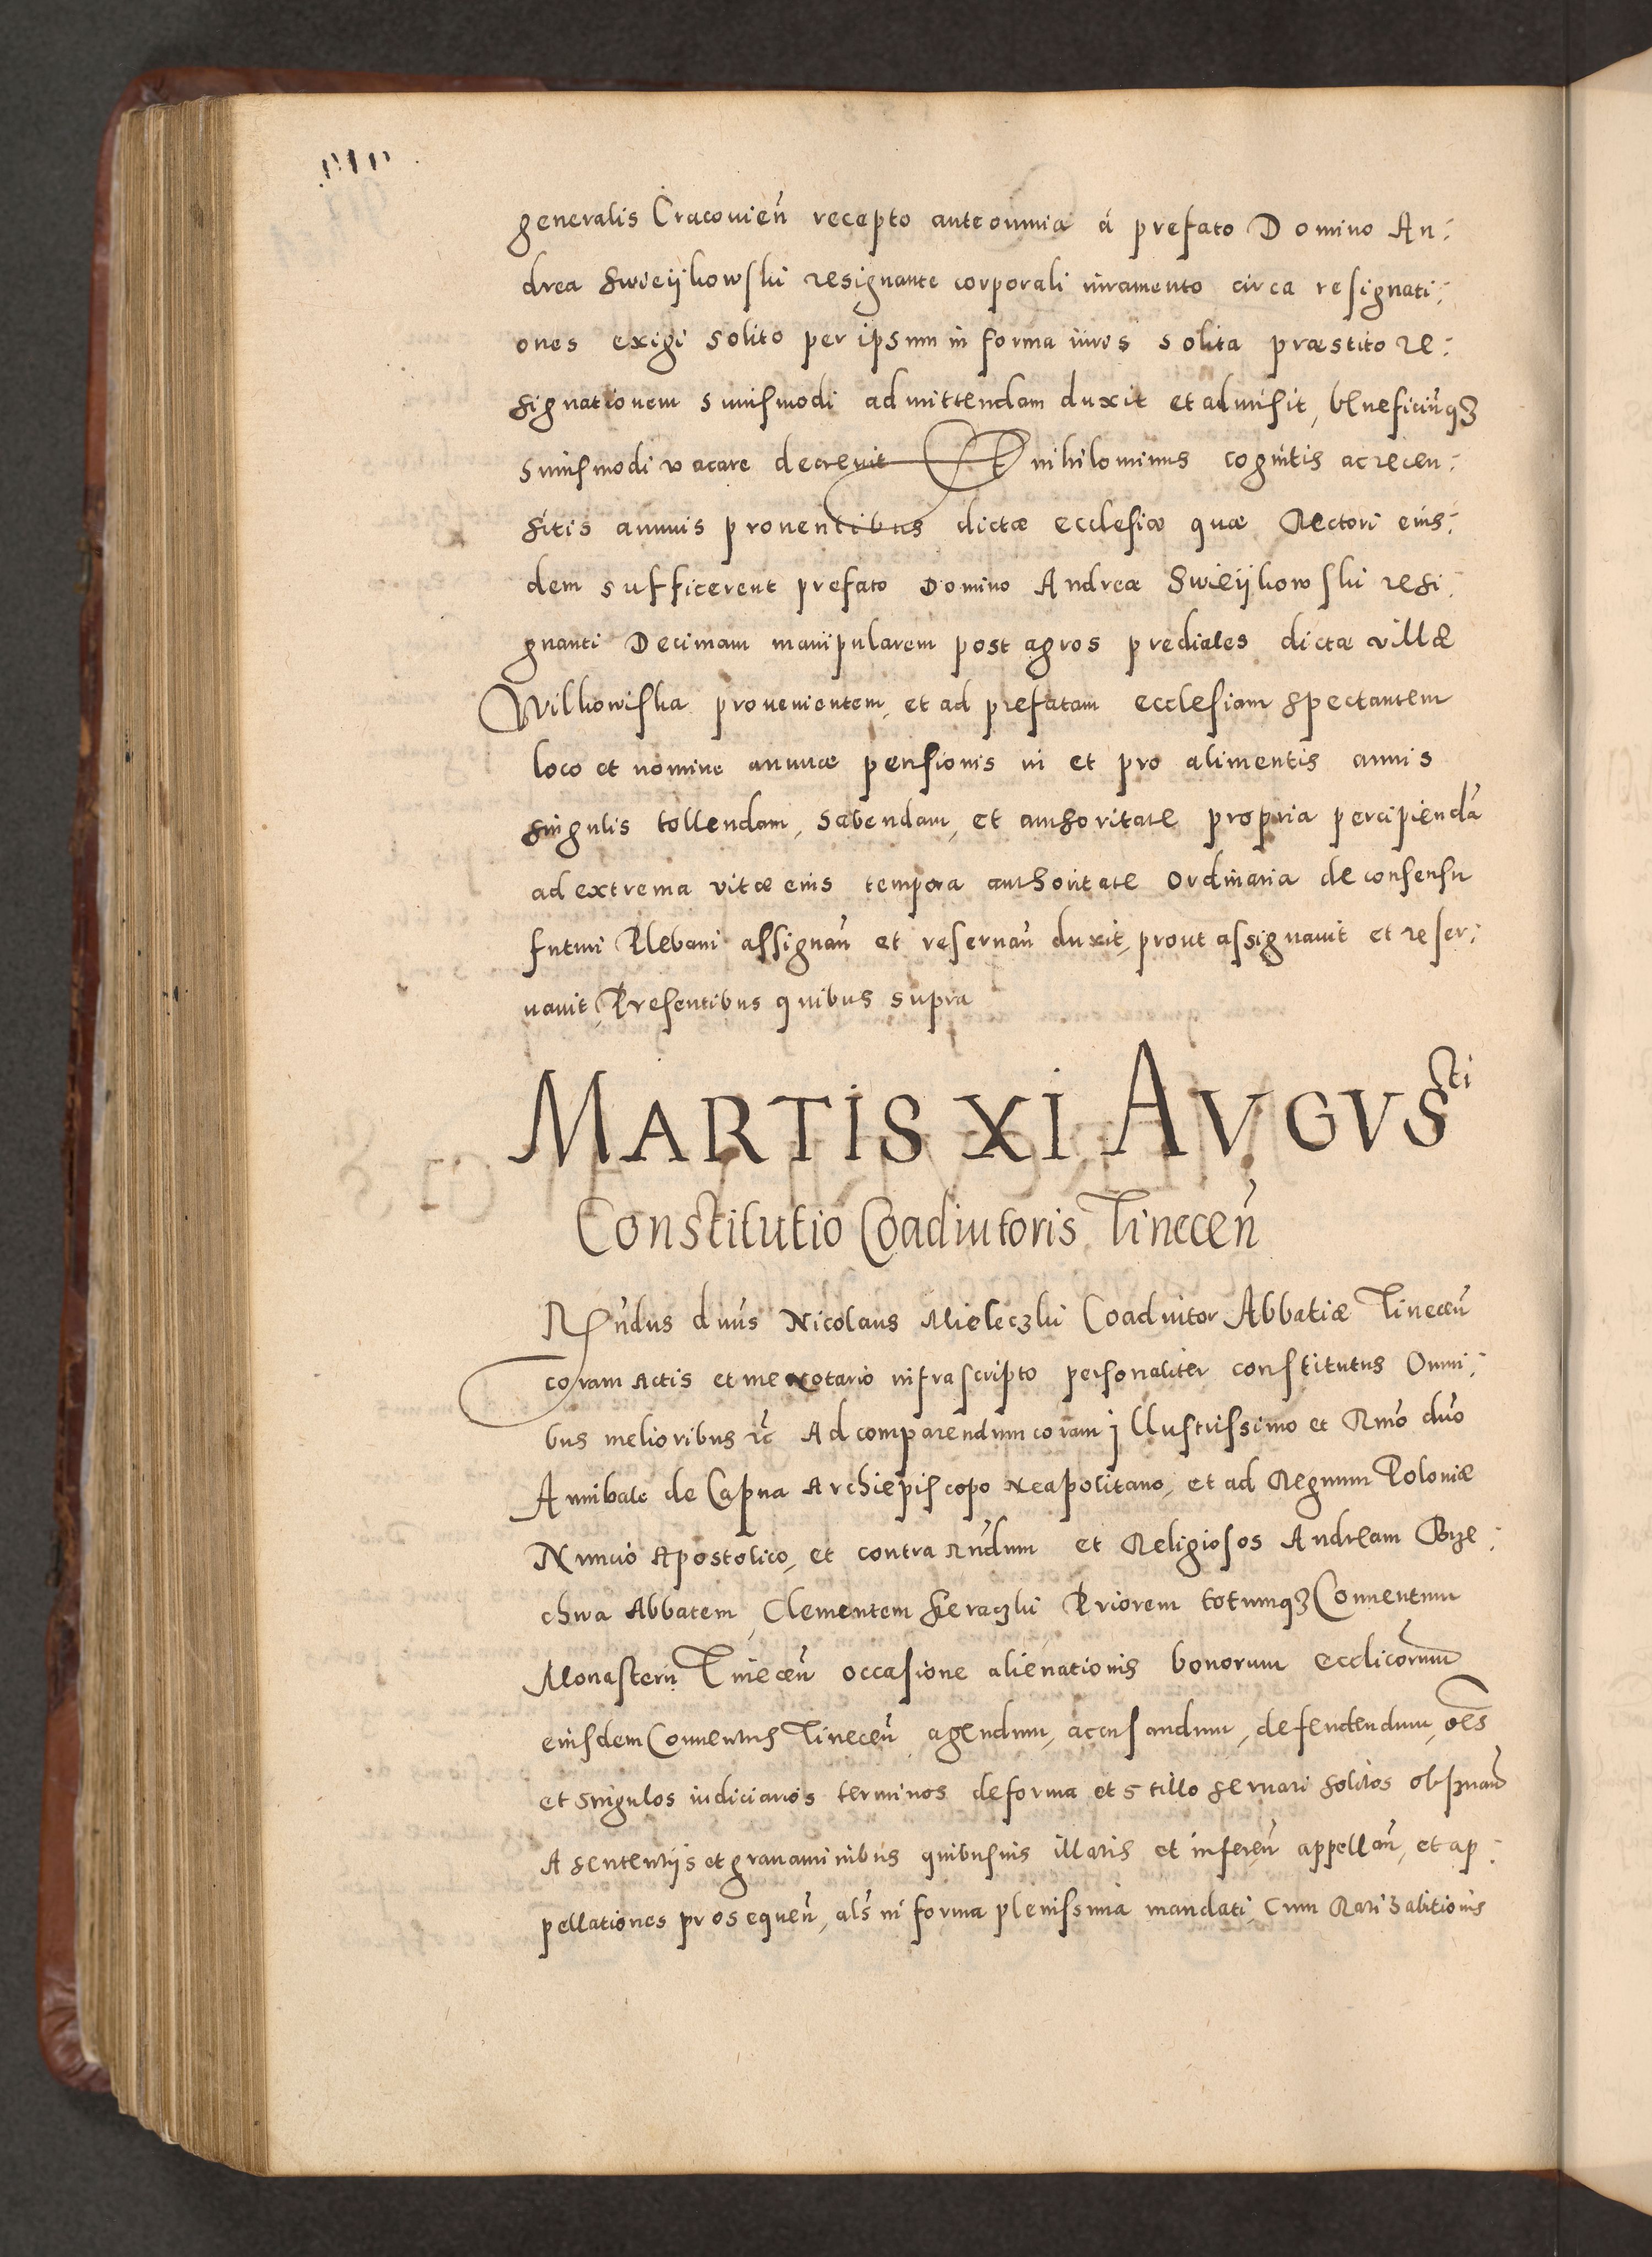 generalis Cracovień recepto ante omnia á prefato Domino An:
drea Swieÿkowski resignante corporali iuramento circa resignati:
ones exigi solito per ipsum in forma iuris solita præstito re:
signationem huiusmodi admittendam duxit et admisit, beneficiūqȝ
huiusmodi vacare decrevit Et nihilominus cognitis ac recen:
sitis annuis proventibus dictæ ecclesiæ quæ Rectori eius:
dem sufficerent prefato Domino Andreæ Swieÿkowski resi:
gnanti Decimam manipularem post agros prediales dictæ villæ
Wilkowiska provenientem, et ad prefatam ecclesiam spectantem
loco et nomine annuæ pensionis ui et pro alimentis annis
singulis tollendam, habendam, et authoritate propria percipiendā
ad extrema vitæ eius tempora authoritate ordinaria de consensu
futuri Plebani assignań et reservań duxit, prout assignavit et reser:
vavit, Presentibus quibus supra
MARTIS XI AVGVSti
Constitutio Coadiutoris Tineceń
Rńdus dńus Nicolaus Mieleczki Coadiutor Abbatiæ Tineceń
coram Actis et me Notario infrascripto personaliter constitutus Omni:
bus melioribus ꝛc̄ Ad comparendum coram Illustrissimo et Rmō dńo
Annibale de Capua Archiepiscopo Neapolitano, et ad Regnum Poloniæ
Nuncio Apostolico, et contra Rńdum et Religiosos Andream Brze:
chwa Abbatem, Clementem Sieraczki Priorem totumqȝ Conventum
Monasterij Tineceń occasione alienationis bonorum ecclīcorum
eiusdem Conventus Tineceń agendum, accusandum, defendendum, oēs
et singulos iudiciarios terminos de forma et stillo servari solitos obsȝnań
A sententijs et gravaminibus quibusvis illatis et infereń appellań, et ap:
pellationes prosequeń, als̄ in forma plenissima mandati, Cum Ratihabitionis